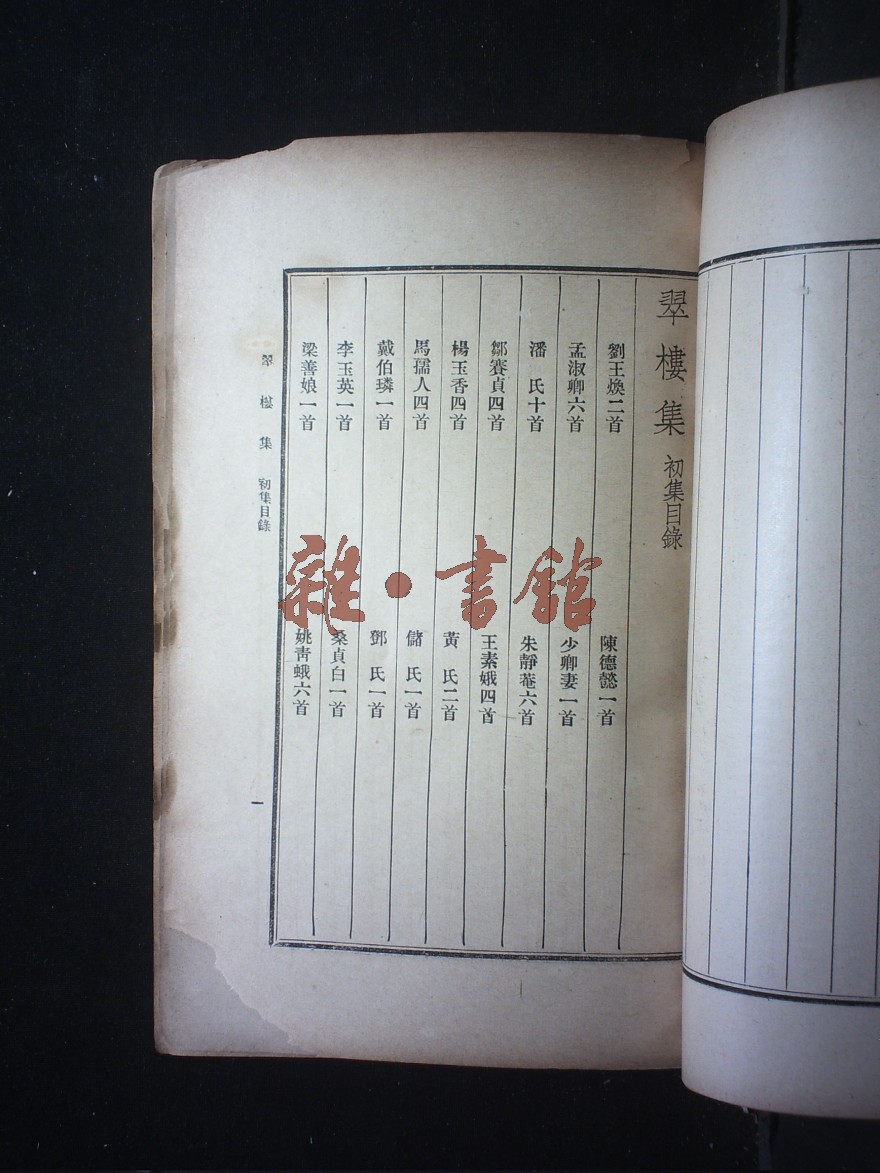 翠樓集 初集目錄
劉王煥二首 陳德懿一首
孟淑卿六首 少卿妻一首
潘氏十首 朱靜菴六首
鄒賽貞四首 王素娥四首
楊玉香四首 黃氏二首
馬孺人四首 儲氏一首
戴伯璘一首 鄧氏一首
李玉英一首 桑貞白一首
梁善娘一首 姚靑蛾六首
翠樓集 初集目錄 一
雜·書館